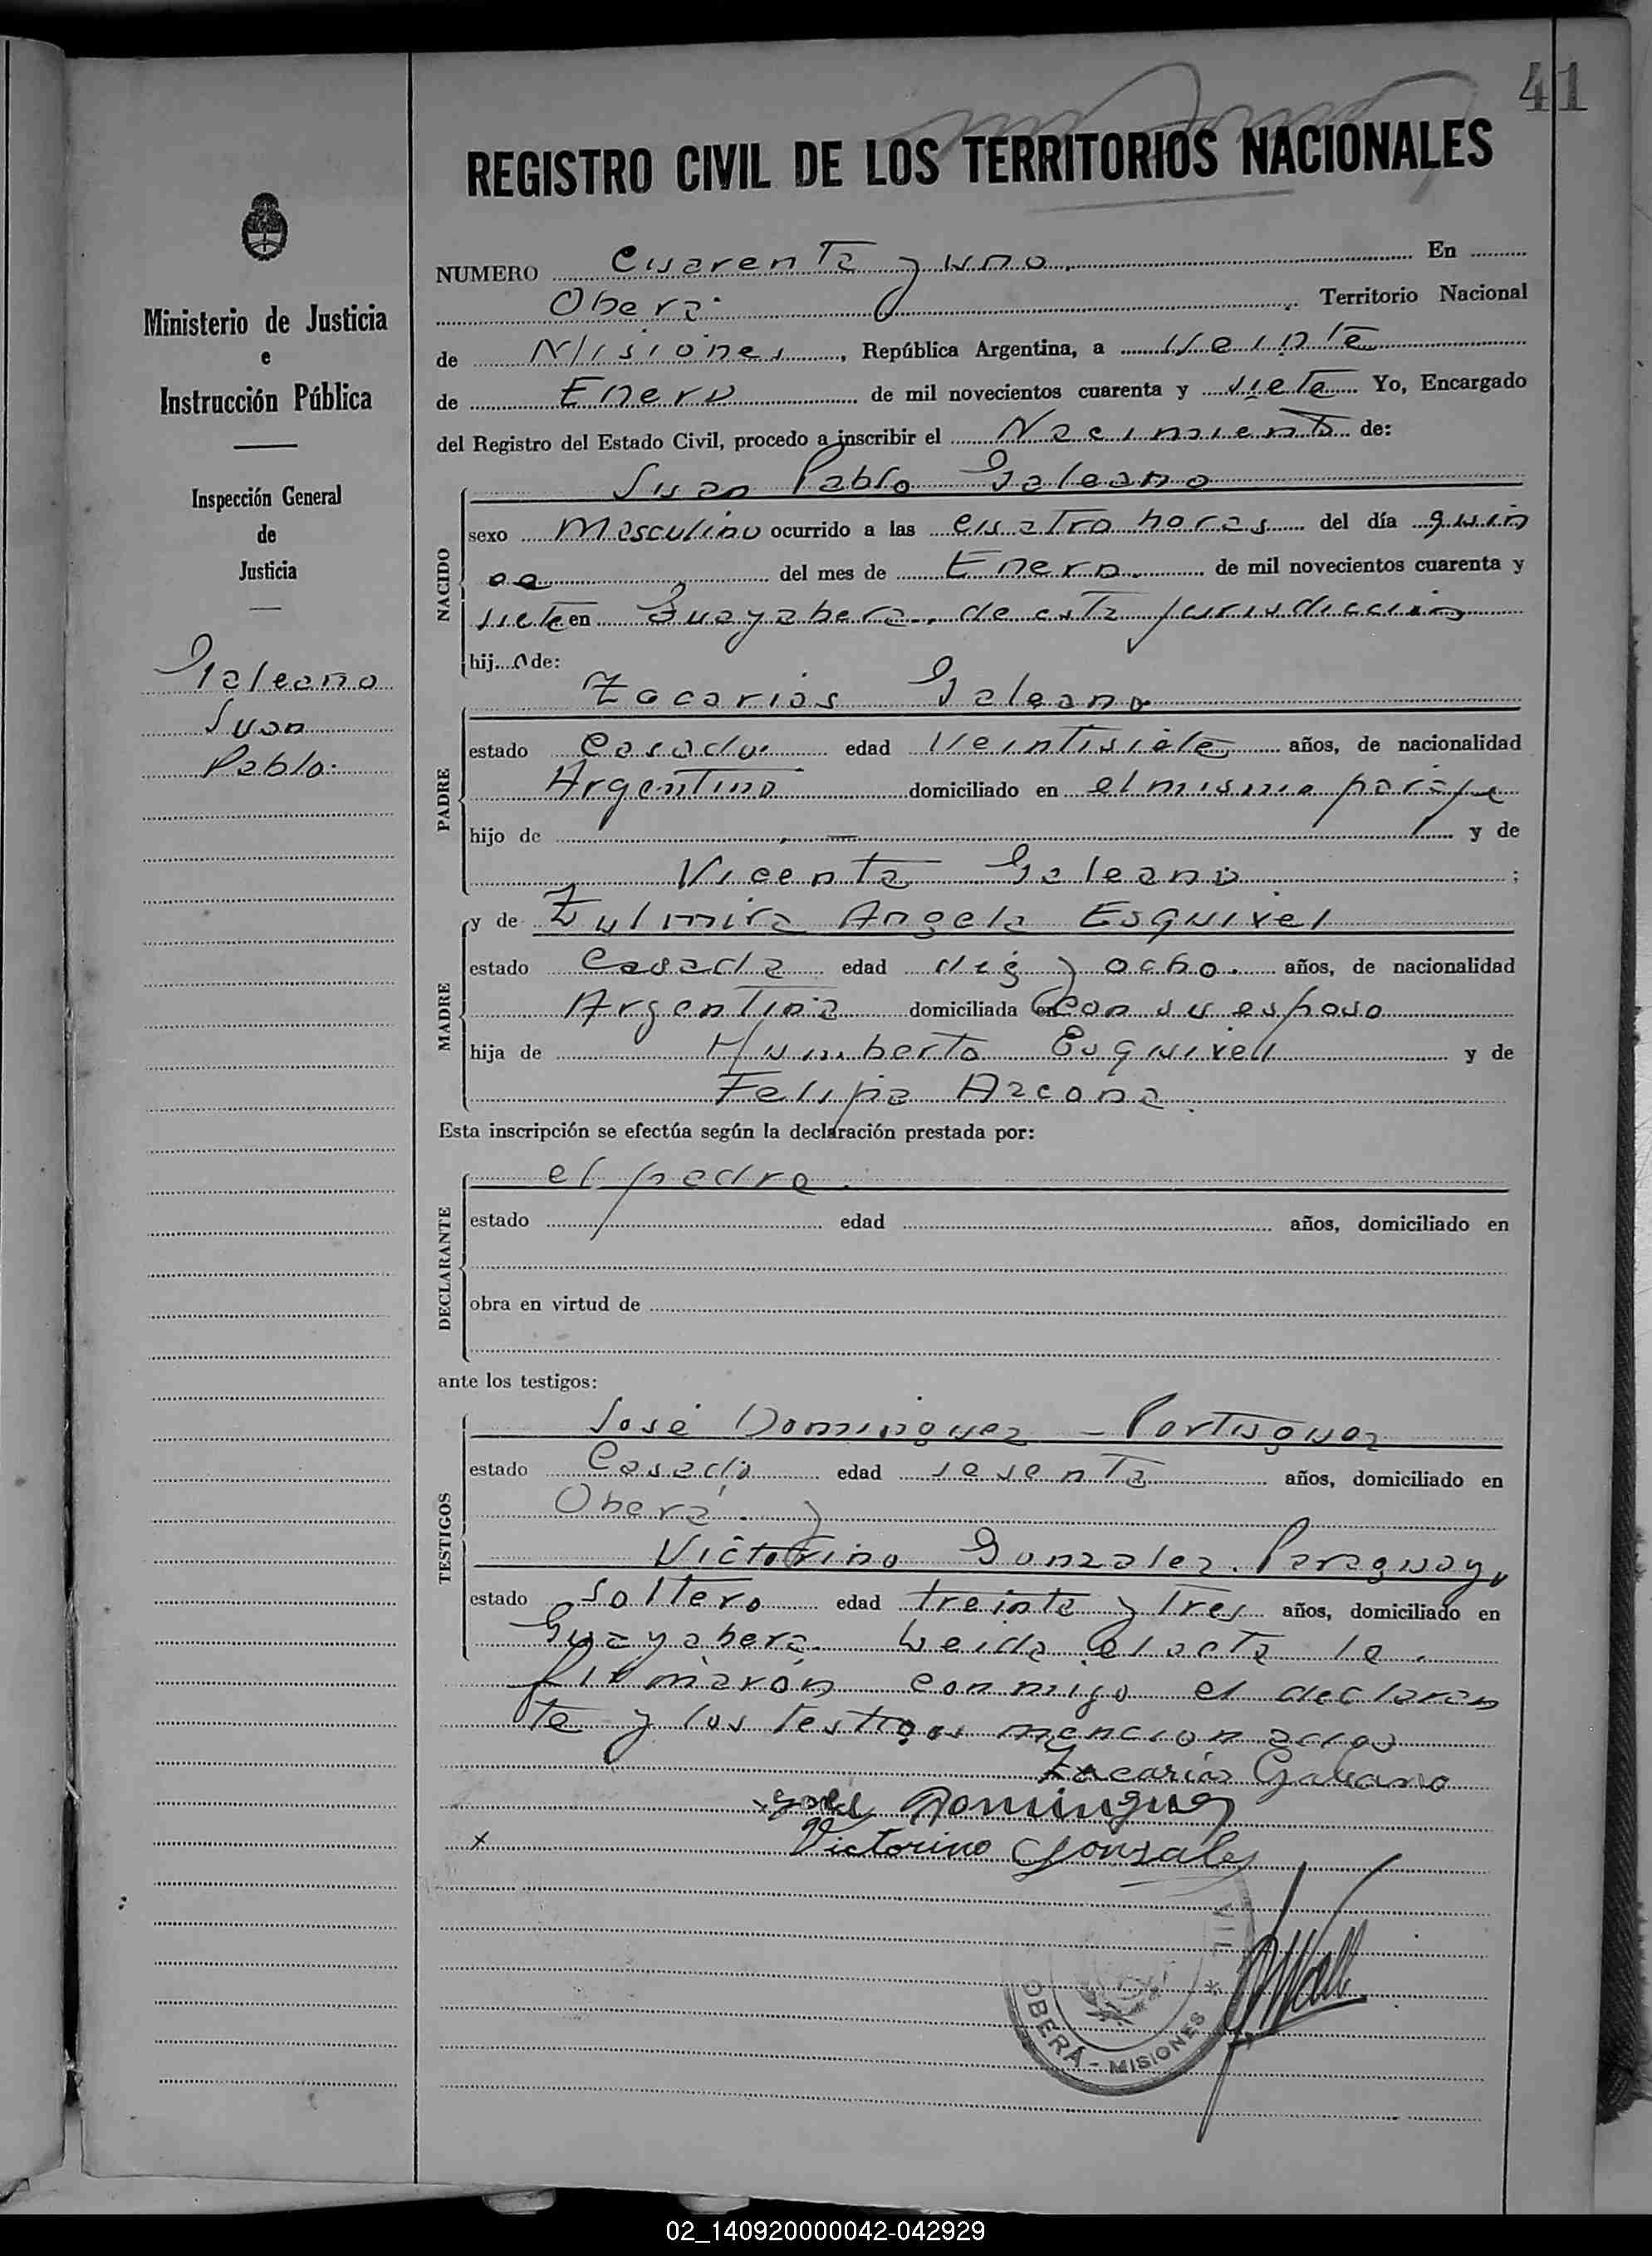 41
REGISTRO CIVIL DE LOS TERRITORIOS NACIONALES
Ministerio de Justicia
e
Instrucción Pública
Inspección General
de
Justicia
Galeano
Juan
Pablo.
NUMERO Cuarenta y uno. En
Obera. Territorio Nacional
de Misiones, República Argentina, a veinte
de Enero de mil novecientos cuarenta y siete Yo, Encargado
del Registro del Estado Civil, procedo a inscribir el Nacimiento de:
NACIDO
Juan Pablo Galeano
sexo Masculino ocurrido a las cuatro horas del día quin
ce del mes de Enero. de mil novecientos cuarenta y
siete en Guayabera.. de esta jurisdicción
hijo de:
PADRE
Zacarias Galeano
estado Casado. edad Veintisiete años, de nacionalidad
Argentino domiciliado en el mismo paraje
hijo de — y de
Vicenta Galeano ;
MADRE
y de Zulmira Angela Esquivel
estado Casada edad diez y ocho. años, de nacionalidad
Argentina domiciliada en con su esposo
hija de Humberto Esquivel y de
Felipa Azcona.
Esta inscripción se efectúa según la declaración prestada por:
DECLARANTE
el padre.
estado edad años, domiciliado en
obra en virtud de
ante los testigos:
TESTIGOS
José Dominguez - Portuguez
estado Casado edad sesenta años, domiciliado en
Oberá. y
Victorino Gonzalez. Paraguayo
estado soltero edad treinta y tres años, domiciliado en
Guayabera. Leida el acta la
firmarón conmigo el declaran
te y los testigos mencionados
Zacarias Galeano
José Dominguez
x Victorino Gonzalez
VIL * OBERÁ - MISIONES *
02_140920000042-042929